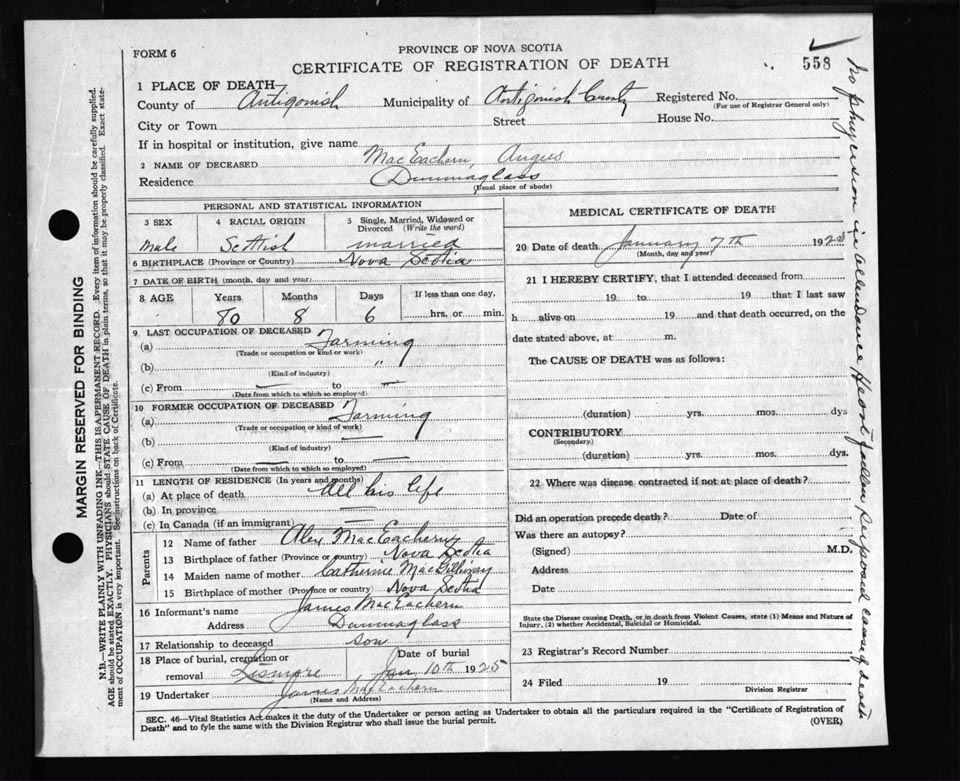 FORM 6
PROVINCE OF NOVA SCOTIA
CERTIFICATE OF REGISTRATION OF DEATH
558
1 PLACE OF DEATH
County of Antigonish Municipality of Antigonish County Registered No.
(For use of Registrar General only)
City or Town Street House No.
If in hospital or institution, give name
2 NAME OF DECEASED MacEachern, Angus
Residence Dunmaglass
(Usual place of abode)
PERSONAL AND STATISTICAL INFORMATION
3 SEX 4 RACIAL ORIGIN 5 Single, Married, Widowed or Divorced (Write the word)
Male Scttish married
6 BIRTHPLACE (Province or Country) Nova Scotia
7 DATE OF BIRTH (month, day and year)
8 AGE Years Months Days If less than one day,
80 8 6 hrs. or min.
9 LAST OCCUPATION OF DECEASED
(a) Farming
(Trade or occupation or kind or work)
(b) "
(Kind of industry)
(c) From — to —
(Date from which to which so employed)
10 FORMER OCCUPATION OF DECEASED
(a) Farming
(Trade or occupation or kind of work)
(b) —
(Kind of industry)
(c) From — to —
(Date from which to which so employed)
11 LENGTH OF RESIDENCE (In years and months)
(a) At place of death All his life
(b) In province —
(c) In Canada (if an immigrant) —
Parents
12 Name of father Alex MacEachern
13 Birthplace of father (Province or country) Nova Scotia
14 Maiden name of mother Catherine MacGillivray
15 Birthplace of mother (Province or country) Nova Scotia
16 Informant's name James MacEachern
Address Dunmaglass
17 Relationship to deceased son
18 Place of burial, cremation or removal Lismore Date of burial Jan 10th 1925
19 Undertaker James MacEachern
(Name and Address)
MEDICAL CERTIFICATE OF DEATH
20 Date of death January 7th 192
(Month, day and year)
21 I HEREBY CERTIFY, that I attended deceased from
19 to 19 that I last saw
h alive on 19 and that death occurred, on the
date stated above, at m.
The CAUSE OF DEATH was as follows:
(duration) yrs. mos. dys
CONTRIBUTORY
(Secondary.)
(duration) yrs. mos. dys.
22 Where was disease contracted if not at place of death?
Did an operation precede death? Date of
Was there an autopsy?
(Signed) M.D.
Address
Date
State the Disease causing Death, or in death from Violent Causes, state (1) Means and Nature of
Injury, (2) whether Accidental, Suicidal or Homicidal.
23 Registrar's Record Number
24 Filed 19
Division Registrar
SEC. 46—Vital Statistics Act makes it the duty of the Undertaker or person acting as Undertaker to obtain all the particulars required in the "Certificate of Registration of
Death" and to fyle the same with the Division Registrar who shall issue the burial permit.
(OVER)
MARGIN RESERVED FOR BINDING
N.B.—WRITE PLAINLY WITH UNFADING INK—THIS IS A PERMANENT RECORD. Every item of information should be carefully supplied.
AGE should be stated EXACTLY. PHYSICIANS should STATE CAUSE OF DEATH in plain terms, so that it may be properly classified. Exact state-
ment of OCCUPATION is very important. See instructions on back of Certificate.
No physician in attendance Heart failure Supposed Cause of death